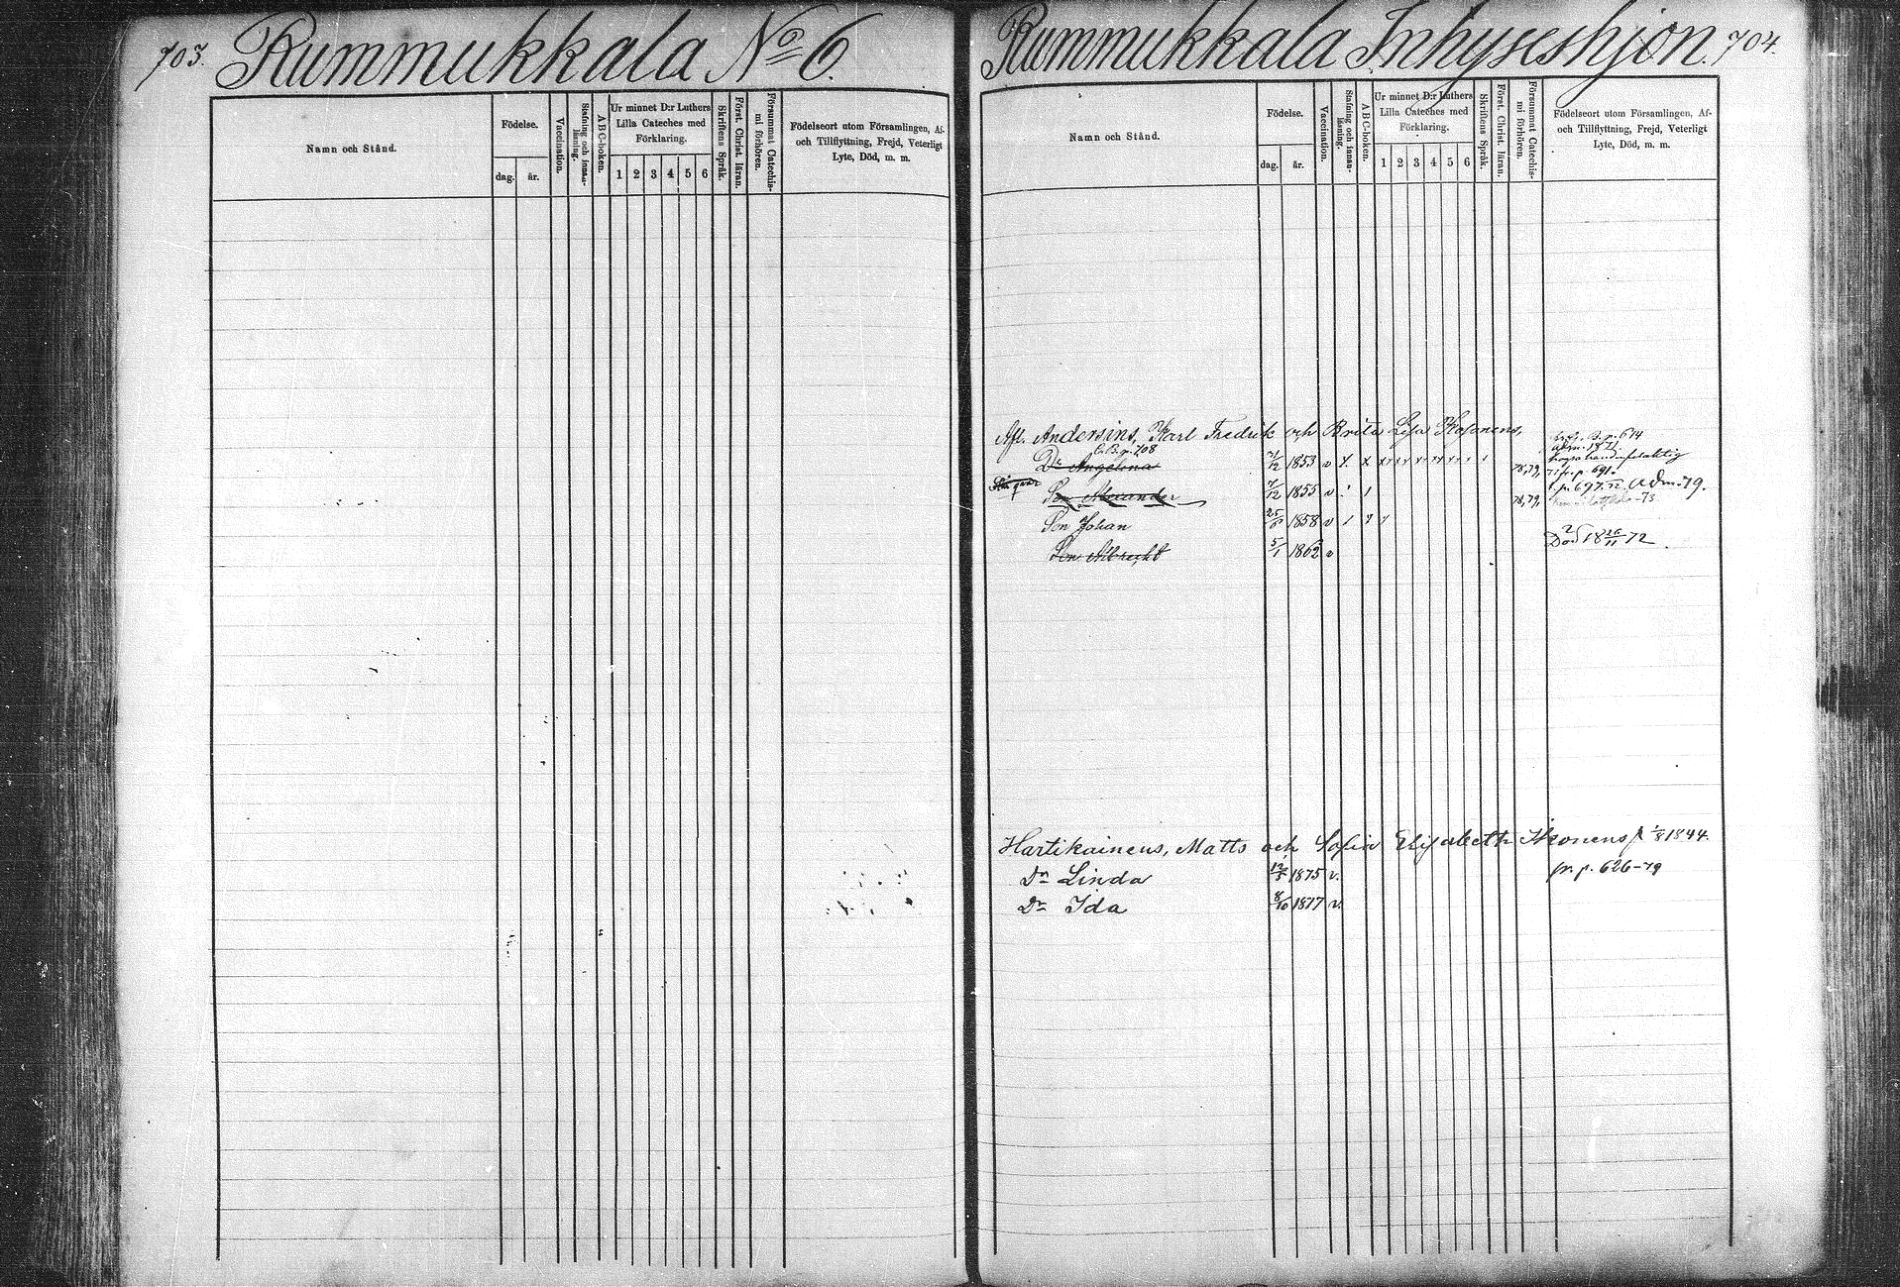 703. Rummukkala No 6.
Namn och Stånd.
Födelse.
dag.
år.
Vaccination.
Stafning och innan-läsning.
A B C-boken.
Ur minnet D:r Luthers
Lilla Cateches med
Förklaring.
1 2 3 4 5 6
Skriftens Språk.
Först. Christ. läran.
Försummat Catechis-
mi förhören.
Födelseort utom Församlingen, Af-
och Tillflyttning, Frejd, Veterligt
Lyte, Död, m. m.
Rummukkala Inhyseshjon. 704.
Namn och Stånd.
Födelse.
dag.
år.
Vaccination.
Stafning och innan-läsning.
A B C-boken.
Ur minnet D:r Luthers
Lilla Cateches med
Förklaring.
1 2 3 4 5 6
Skriftens Språk.
Först. Christ. läran.
Försummat Catechis-
mi förhören.
Födelseort utom Församlingen, Af-
och Tillflyttning, Frejd, Veterligt
Lyte, Död, m. m.
Afl. Andersins, Karl Fredrik och Brita Lisa
p. 614
p. 708
Dr Angelina 1853 v
p. 691.
Son Alexander 7/12 1855 v 78, 79, p 697. Adm. 79.
Son Johan 25/6 1858 v
Son Albrecht 5/1 1862 v Död 18 26/11 72
Hartikainens, Matts och Sofia Elisabeth Ikonens f 1/8 1844.
Dr Linda 12/5 1875 v. fr. p. 626-79
Dr Ida 8/10 1877 v.